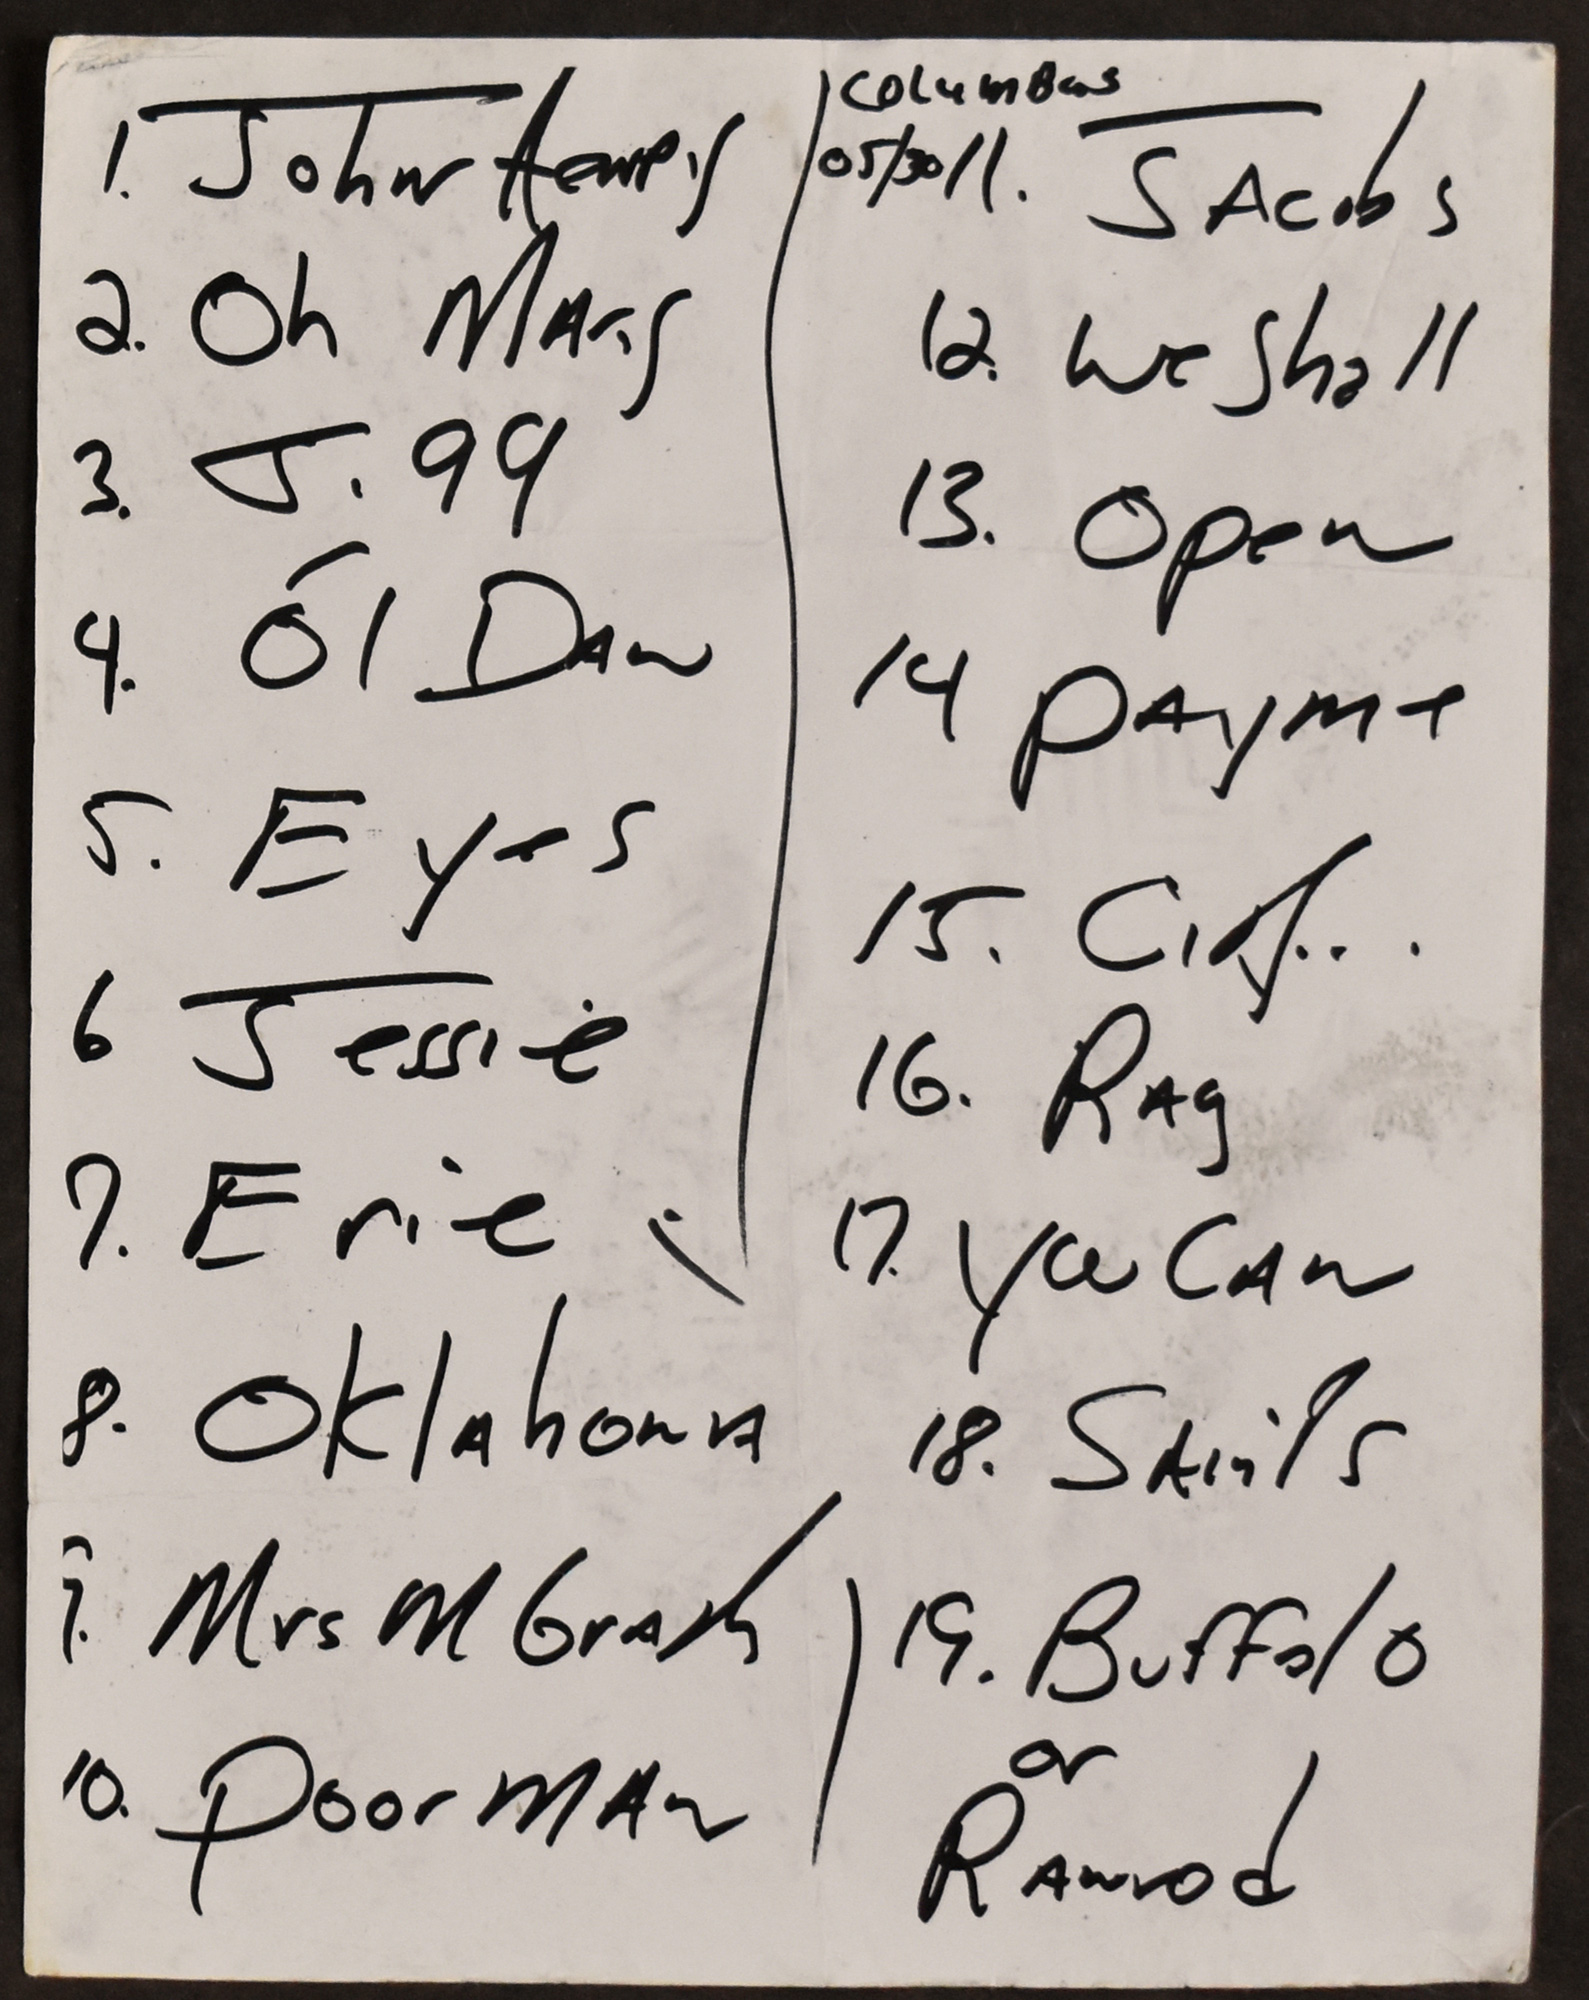 1. John Henry
2. Oh Mary
3. J. 99
4. Ol Dan
5. Eyes
6 Jessie
7. Erie
8. Oklahoma
9. Mrs McGrath
10. Poor Man
Columbus
05/30
11. Jacobs
12. We Shall
13. Open
14 Pay me
15. City...
16. Rag
17. You Can
18. Saints
19. Buffalo
or
Ramrod